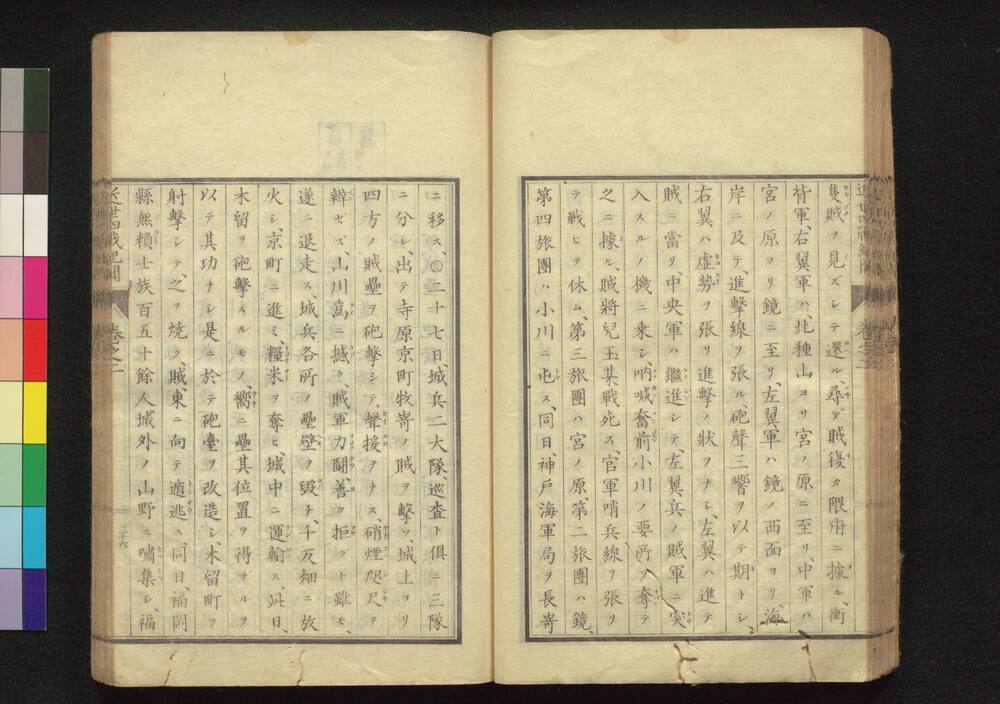 隻賊ヲ見ズシテ還ル、尋デ賊復タ隈府ニ據ル、衝
背軍、右翼軍ハ、北種山ヨリ宮ノ原ニ至リ、中軍ハ
宮ノ原ヨリ鏡ニ至リ、左翼軍ハ鏡ノ西面ヨリ、海
岸ニ及テ、進撃線ヲ張ル、砲聲三響ヲ以テ期トシ、
右翼ハ虚勢ヲ張リ進撃ノ狀ヲナシ、左翼ハ進テ
賊ニ當リ、中央軍ハ繼進シテ、左翼兵ノ賊軍ニ突
入スルノ機ニ乗シ、吶喊奮前小川ノ要所ヲ奪テ
之ニ據ル、賊將兒玉某戰死ス、官軍哨兵線ヲ張リ
テ戰ヒヲ休ム、第三旅團ハ宮ノ原、第二旅團ハ鏡、
第四旅團ハ小川ニ屯ス、同日、神戸海軍局ヲ長嵜
ニ移ス、〇二十七日、城兵二大隊、巡査ト俱ニ三隊
ニ分レ、出テ寺原京町牧嵜ノ賊ヲ擊ツ、城上ヨリ
四方ノ賊壘ヲ砲擊シテ聲援ヲナス、硝煙咫尺ヲ
辨ゼズ、山川爲ニ撼ク、賊軍力鬪、善ク拒クト雖モ、
遂ニ退走ス、城兵各所ノ壘壁ヲ毀チ、千反畑ニ放
火シ、京町ニ進ミ、糧米ヲ奪ヒ、城中ニ運輸ス、此日、
木留ヲ砲擊スルモノ、嚮ニ壘其位置ヲ得サルヲ
以テ其功ナシ、是ニ於テ砲臺ヲ改造シ、木留町ヲ
射擊シテ、之ヲ燒ク、賊、東ニ向テ遁逃ス、同日福岡
縣無賴士族百五十餘人、城外ノ山野ニ嘯集シ、福
近世四戰紀聞 卷之二 二十六